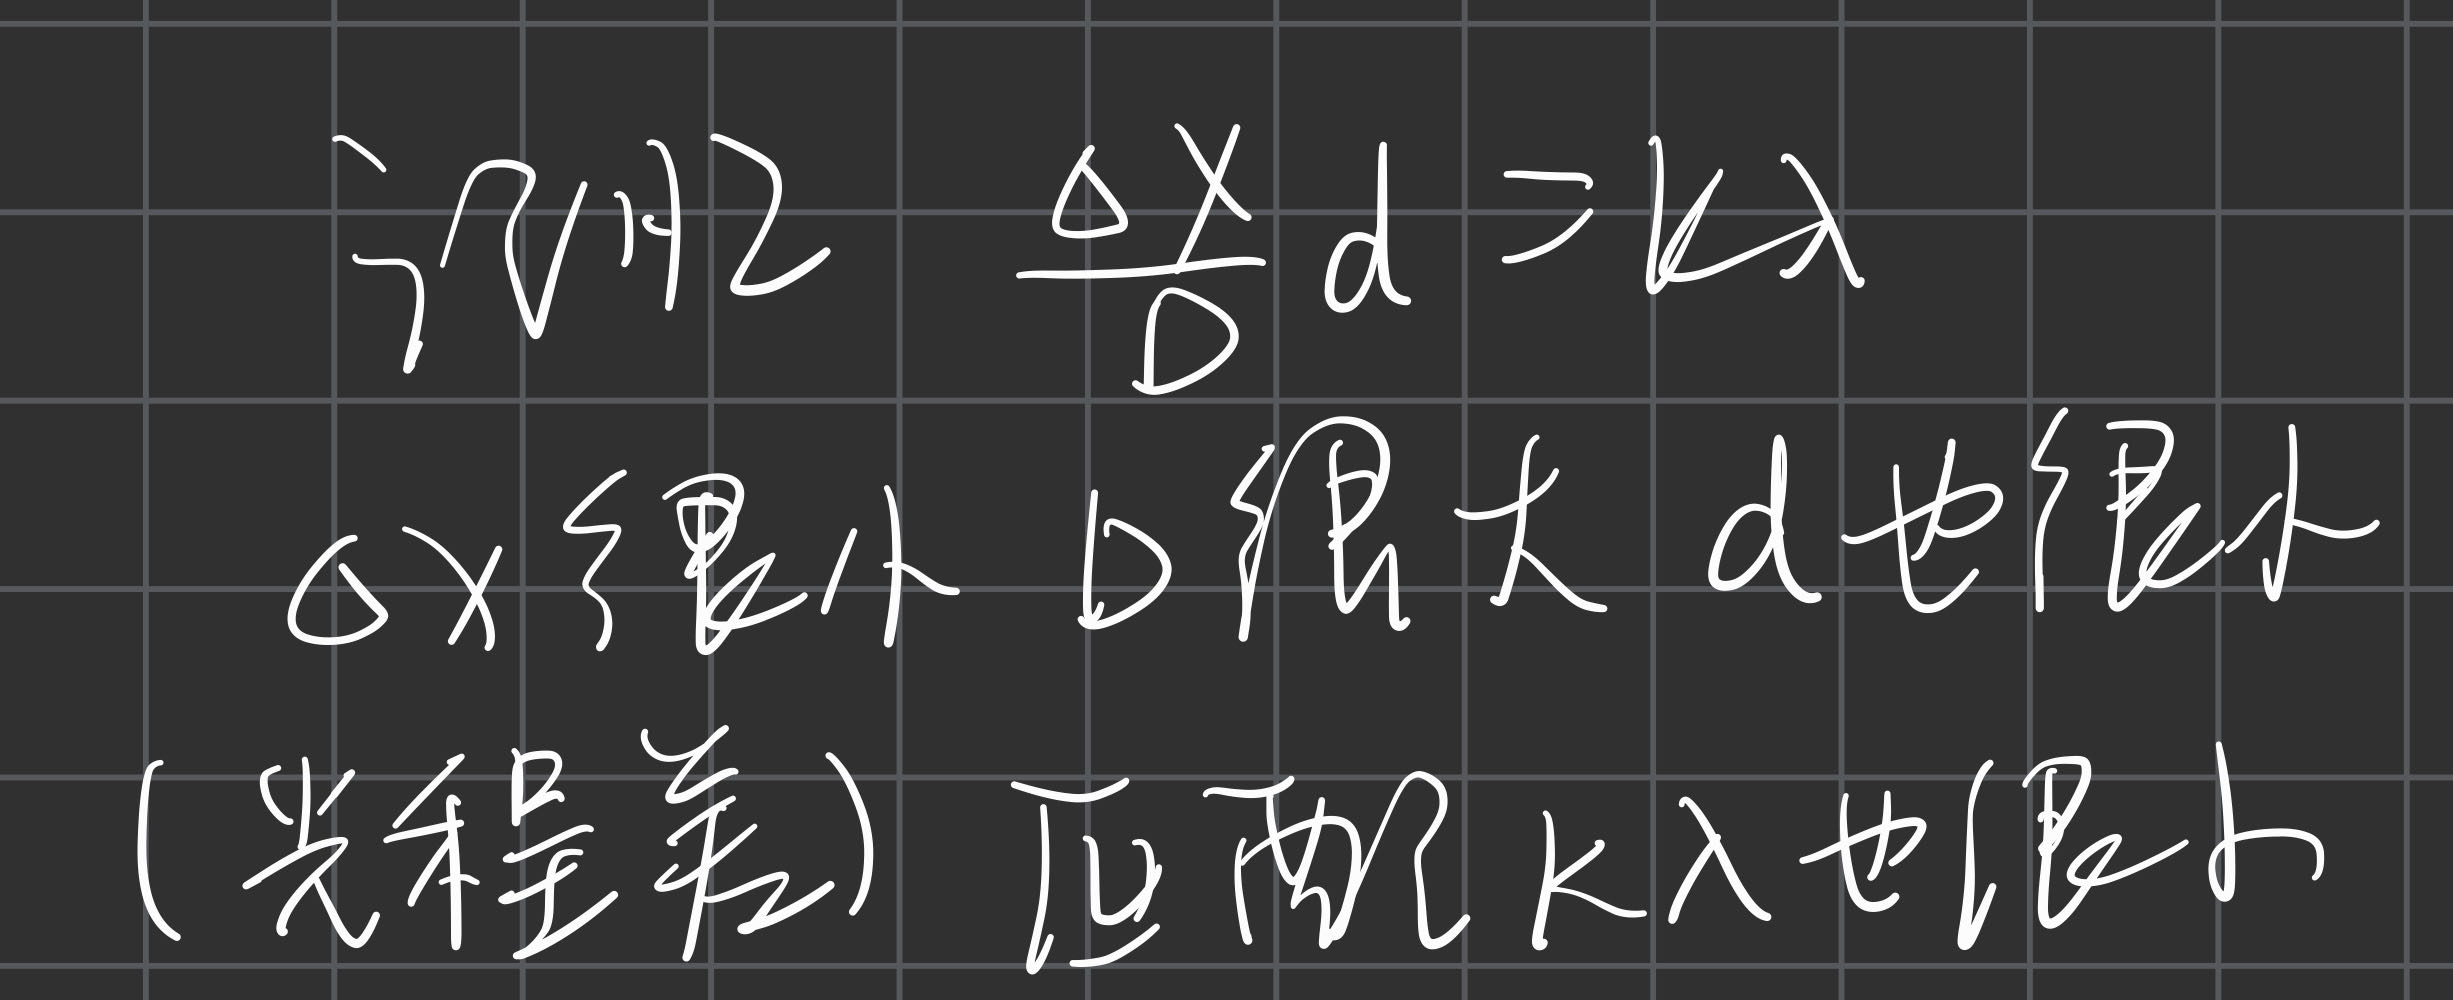 Δx/D d = kλ
Δx很小 D很大 d也很小
(光程差) kλ也很小